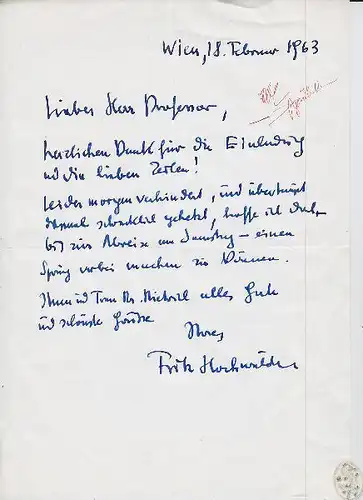 Wien, 18. Februar 1963
Lieber Herr Professor,
herzlichen Dank für die Einladung
und die lieben Zeilen!
Leider morgen verhindert, und überhaupt
diesmal schrecklich gehetzt, hoffe ich doch,
bis zur Abreise am Samstag – einen
Sprung vorbei machen zu können.
Ihnen und Frau Dr. alles Gute
und schönste Grüße
Ihres
Fritz Hochwälder